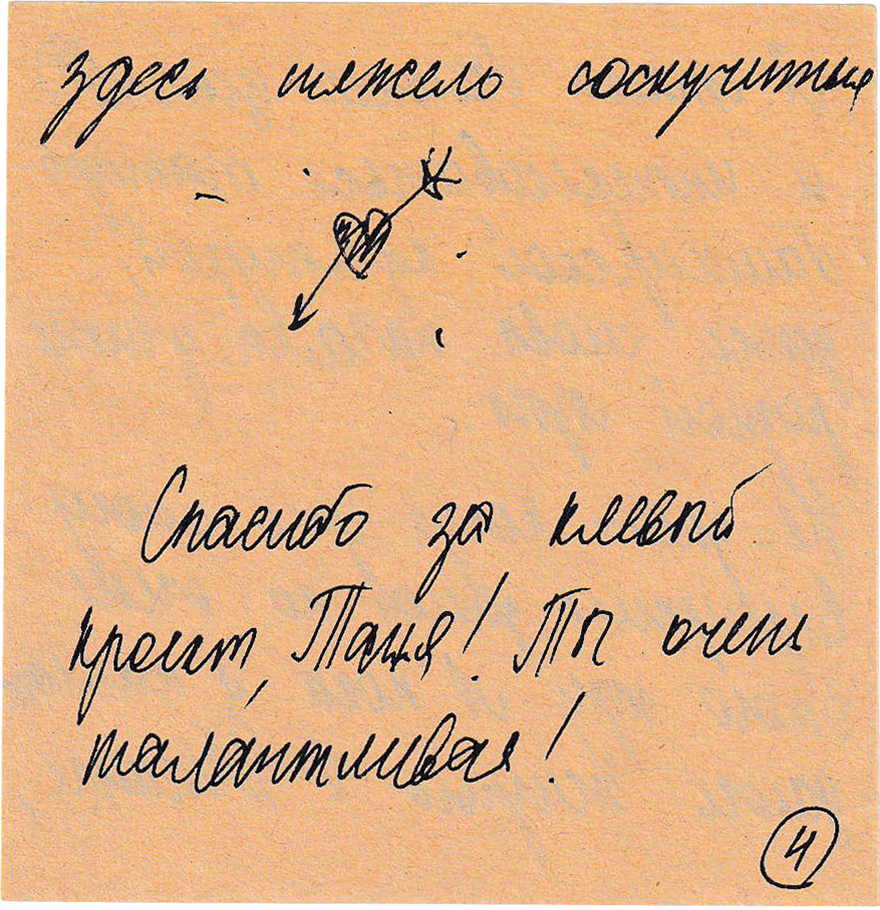 здесь тяжело соскучиться
Спасибо за клевый
проект, Таня! Ты очень
талантливая!
4